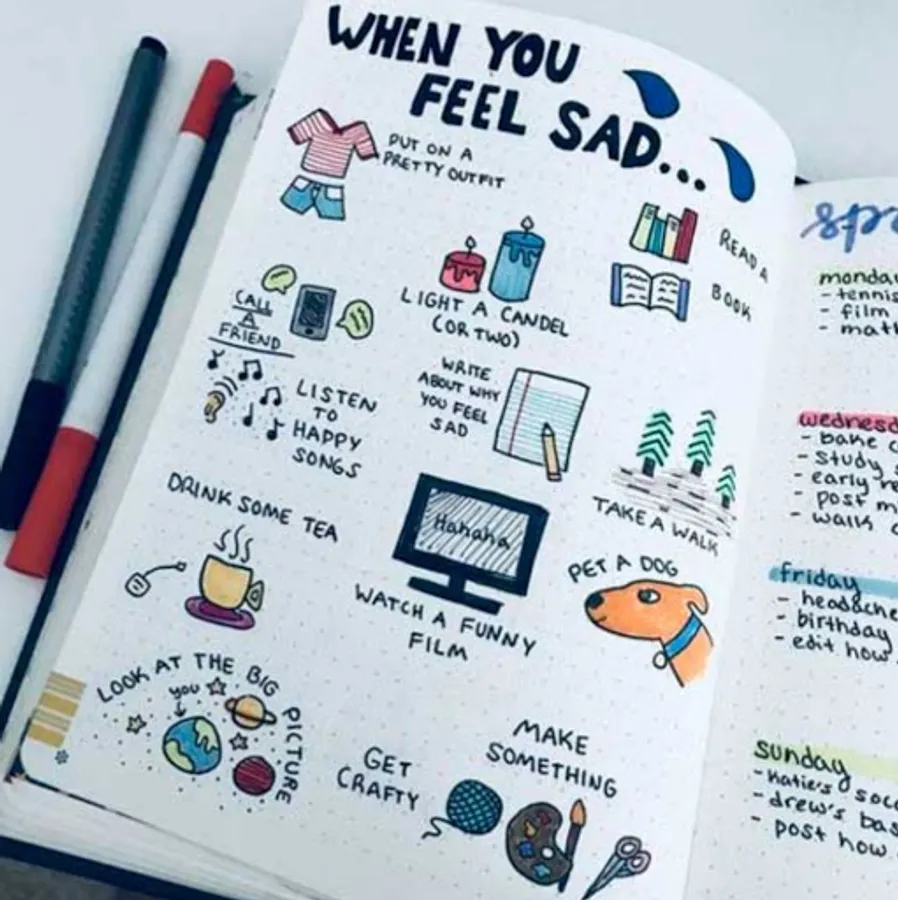 WHEN YOU
FEEL SAD...
PUT ON A
PRETTY OUTFIT
LIGHT A CANDEL
(OR TWO)
READ A
BOOK
CALL
A
FRIEND
LISTEN
TO
HAPPY
SONGS
WRITE
ABOUT WHY
YOU FEEL
SAD
TAKE A WALK
DRINK SOME TEA
Hahaha
WATCH A FUNNY
FILM
PET A DOG
LOOK AT THE BIG
PICTURE
you
GET
CRAFTY
MAKE
SOMETHING
monday
- tennis
- film
- math
- bake
- study
- early
- post
- walk
friday
- birthday
- edit how
sunday
- katie's
- drew's
- post how